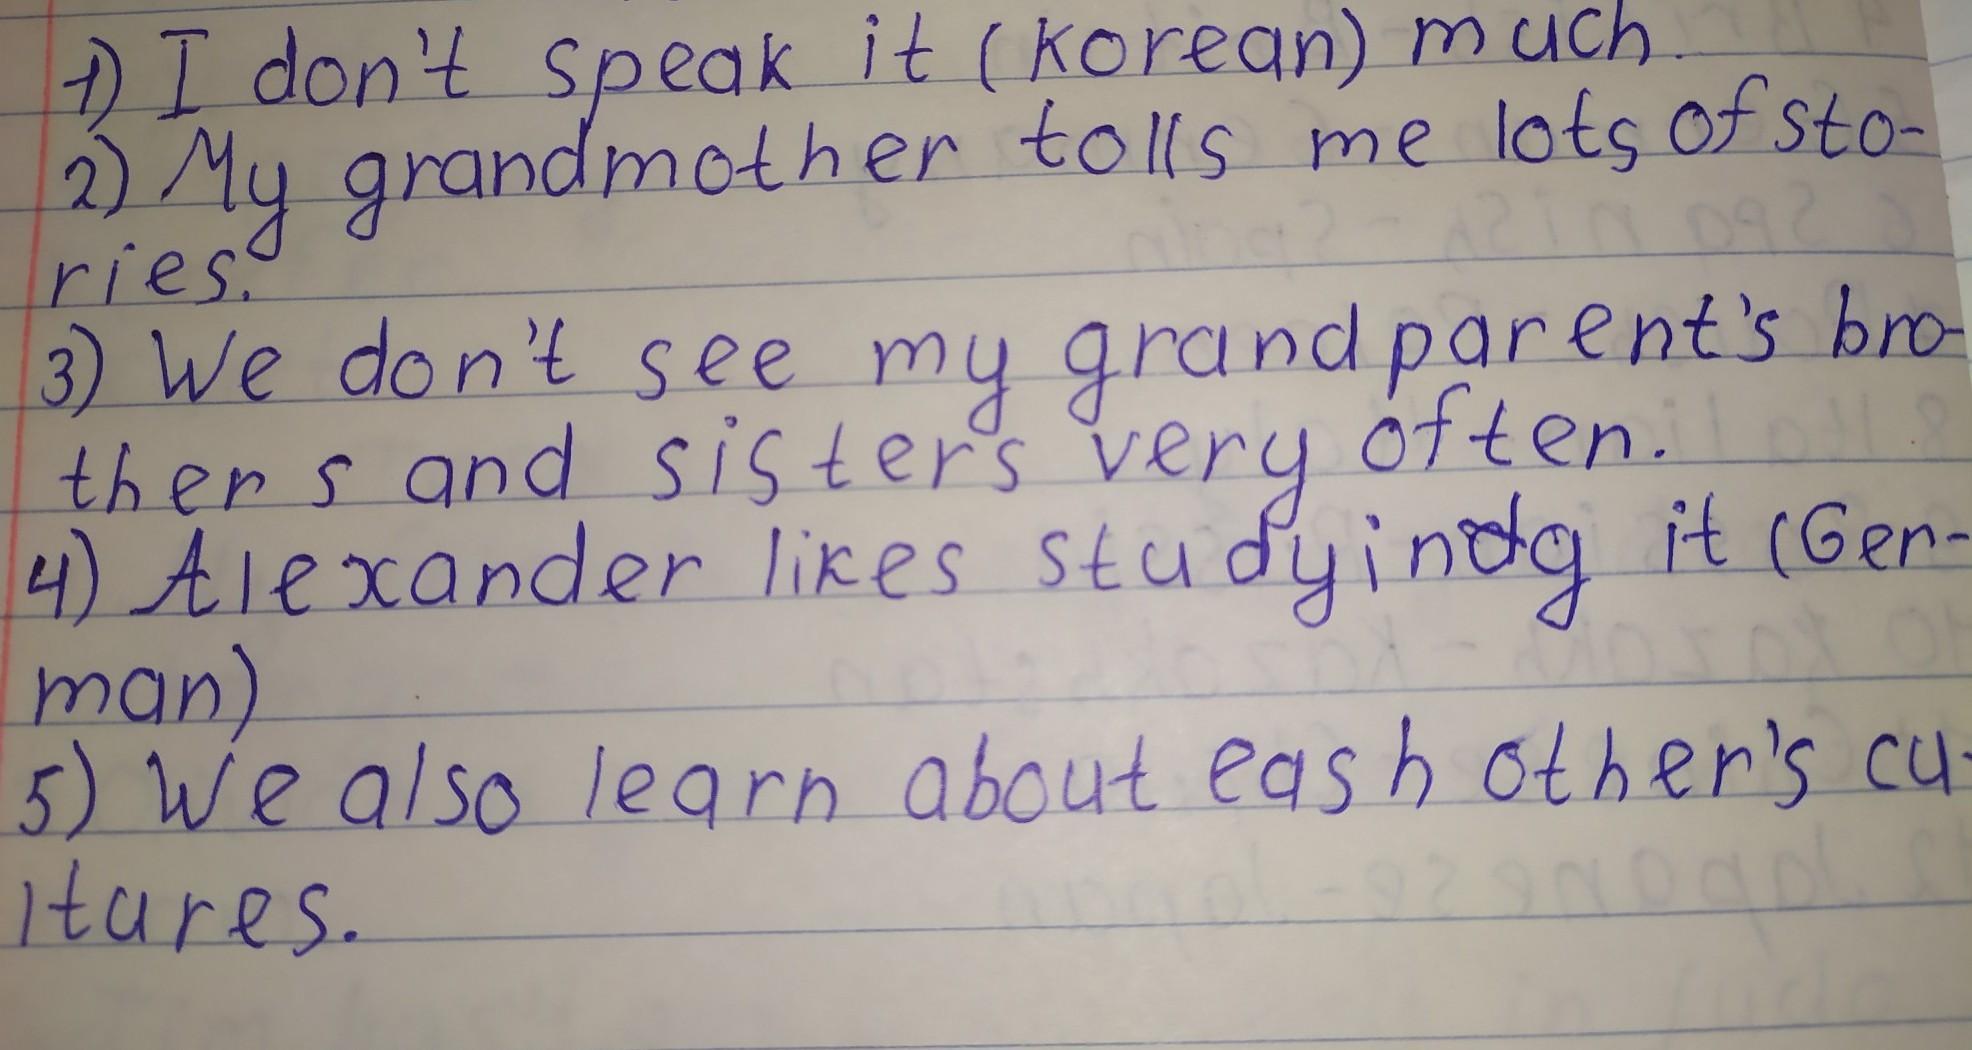 1) I don't speak it (Korean) much.
2) My grandmother tolls me lots of sto-
ries.
3) We don't see my grandparent's bro-
thers and sisters very often.
4) Alexander likes studying it (Ger-
man)
5) We also learn about eash other's cu-
ltures.